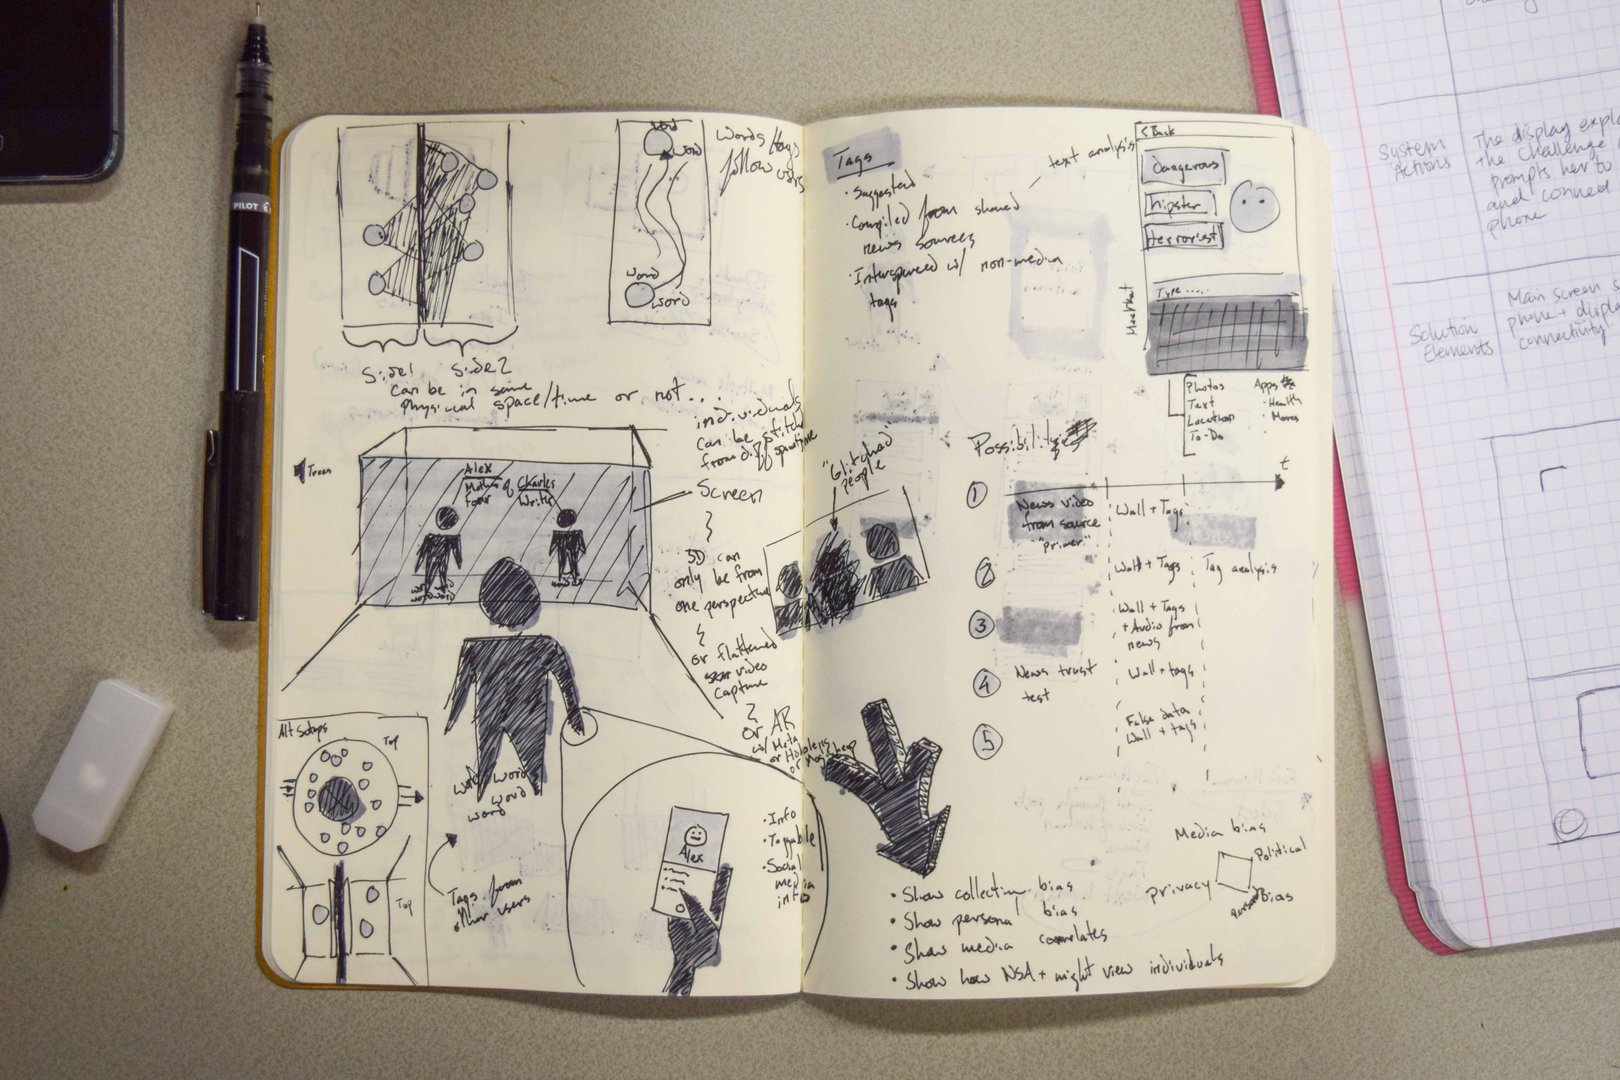 PILOT
word
word
words/tags
follow users
word
word
Side 1
Side 2
Can be in same
Physical space/time or not...
individuals
can be stitched
from diff spacetime
Screen
}
3D can
only be from
one perspective
{
or flattened
video
capture
}
or AR
w/ Meta
or Hololens
or
Alex
Charles
Mother of
four
Writer
word word
words
Alt Setups
Top
Top
word word
word
word
Tags from
other users
Alex
• Info
• Taggable
• Social
media
info
Tags
• Suggested
• Compiled from shared
news sources
• Interspersed w/ non-media
tags
text analysis
< Back
Dangerous
hipster
terrorist
Type ....
Photos
Text
Location
To-Do
Apps
• Health
• Moves
"Glitched"
people
Possibilities
t
1
News video
from source
"primer"
Wall + Tags
2
Wall + Tags
Tag analysis
3
Wall + Tags
+ Audio from
news
4
News trust
test
Wall + tags
5
False data
Wall + tags
• Show collective bias
• Show personal bias
• Show media correlates
• Show how NSA + might view individuals
Media bias
Political
privacy
bias
System
Actions
The display
the challenge
prompts her to
and connect
phone
Solution
Elements
Main screen
phone + display
connectivity